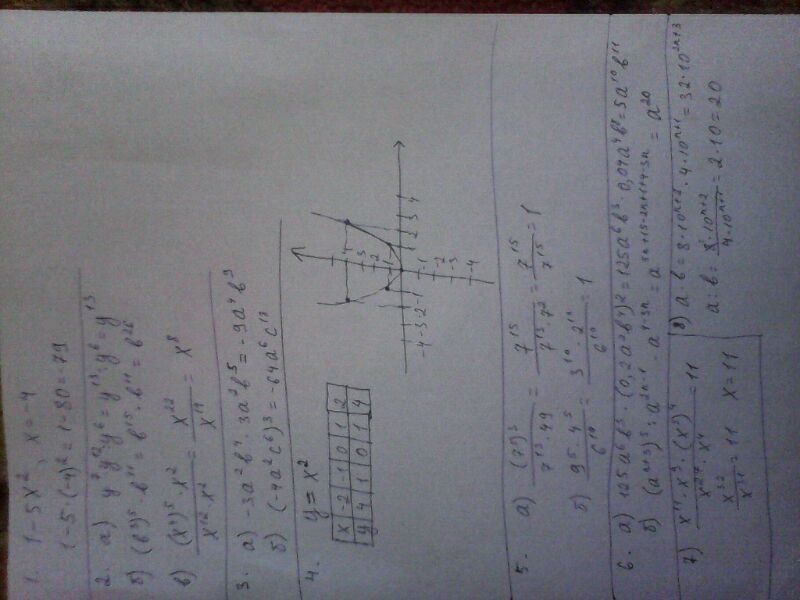 1. 1-5x², x=-4
1-5·(-4)²=1-80=-79
2. а) y⁷·y¹²:y⁶=y¹³
б) (b³)⁵·b¹¹=b¹⁵·b¹¹=b²⁶
в) (x⁴)⁵·x² / x¹²·x² = x²² / x¹⁴ = x⁸
3. а) 3a²b⁴·3a²b⁵=-9a⁴b⁹
б) (-4a²c⁶)³=-64a⁶c¹⁸
4. y=x²
x -2 -1 0 1 2
y 4 1 0 1 4
4
3
2
1
-4 -3 -2 -1 2 3 4
-1
-2
-3
-4
5. а) 7¹⁵ / 7¹³·49 = 7¹⁵ / 7¹³·7² = 7¹⁵ / 7¹⁵ = 1
б) 9⁵·4⁵ / 6¹⁰ = 3¹⁰·2¹⁰ / 6¹⁰ = 1
6. а) 125a⁶b³·(0,2a²b⁴)²=125a⁶b³·0,04a⁴b⁸=5a¹⁰b¹¹
б) = a²⁰
7) = 11
x³² / x³¹ = 11 x=11
8) a·b=8·10ⁿ⁺²·4·10ⁿ⁺¹=32·10²ⁿ⁺³
a:b= 8·10ⁿ⁺² / 4·10ⁿ⁺¹ =2·10=20